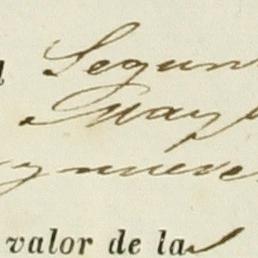 Segun
May
y nueve
valor de la